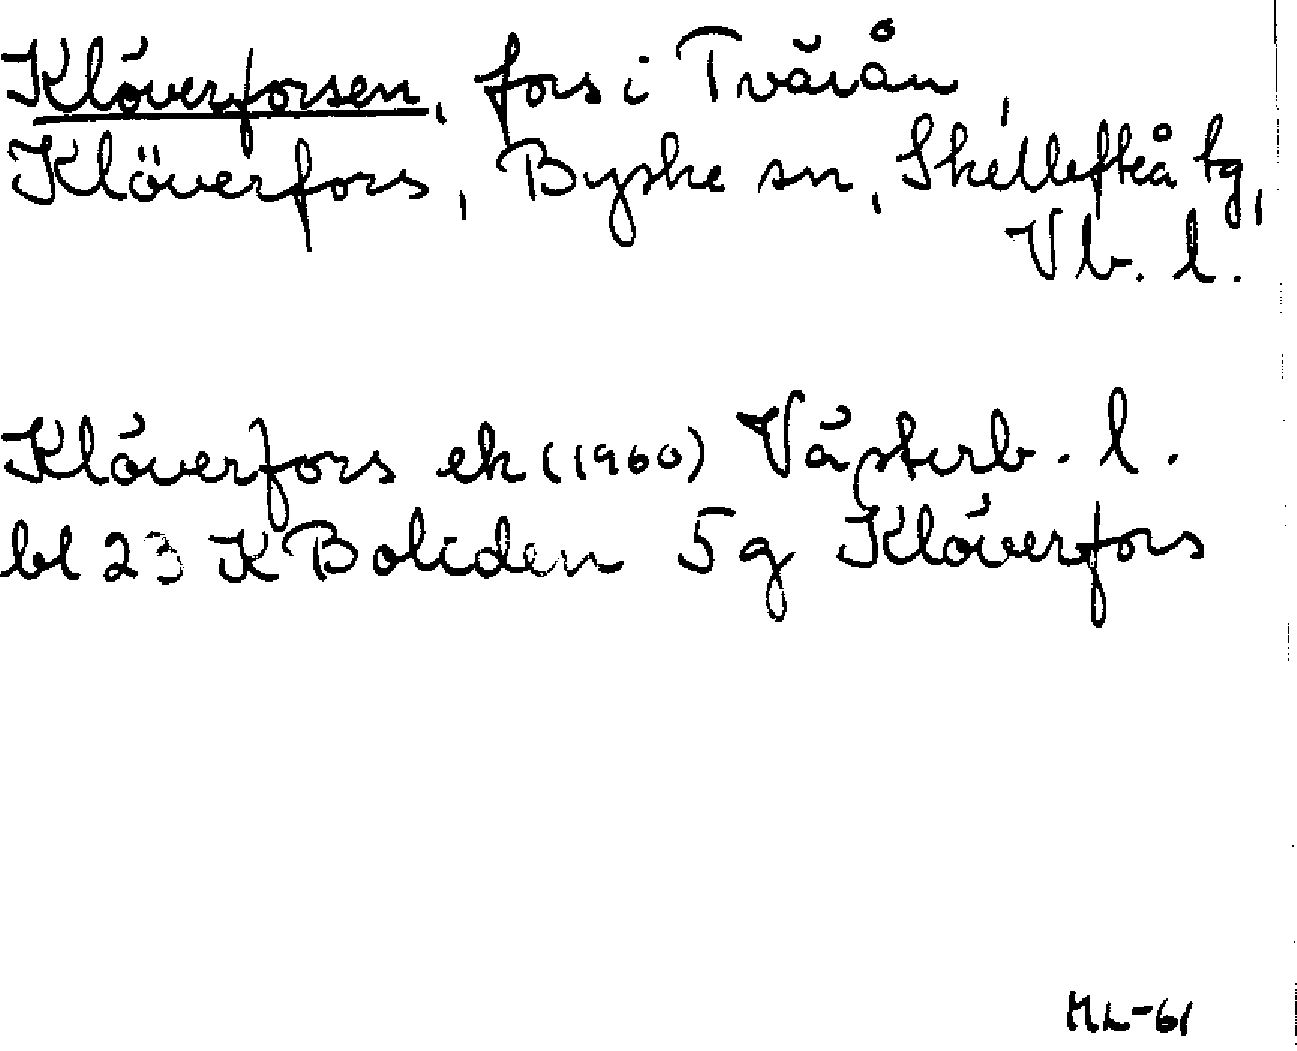 Klöverforsen, fors i Tvärån,
Klöverfors, Byske sn, Skellefteå tg,
Vb. l.
Klöverfors ek (1960) Västerb. l.
bl 23 K Boliden 5g Klöverfors
ML-61